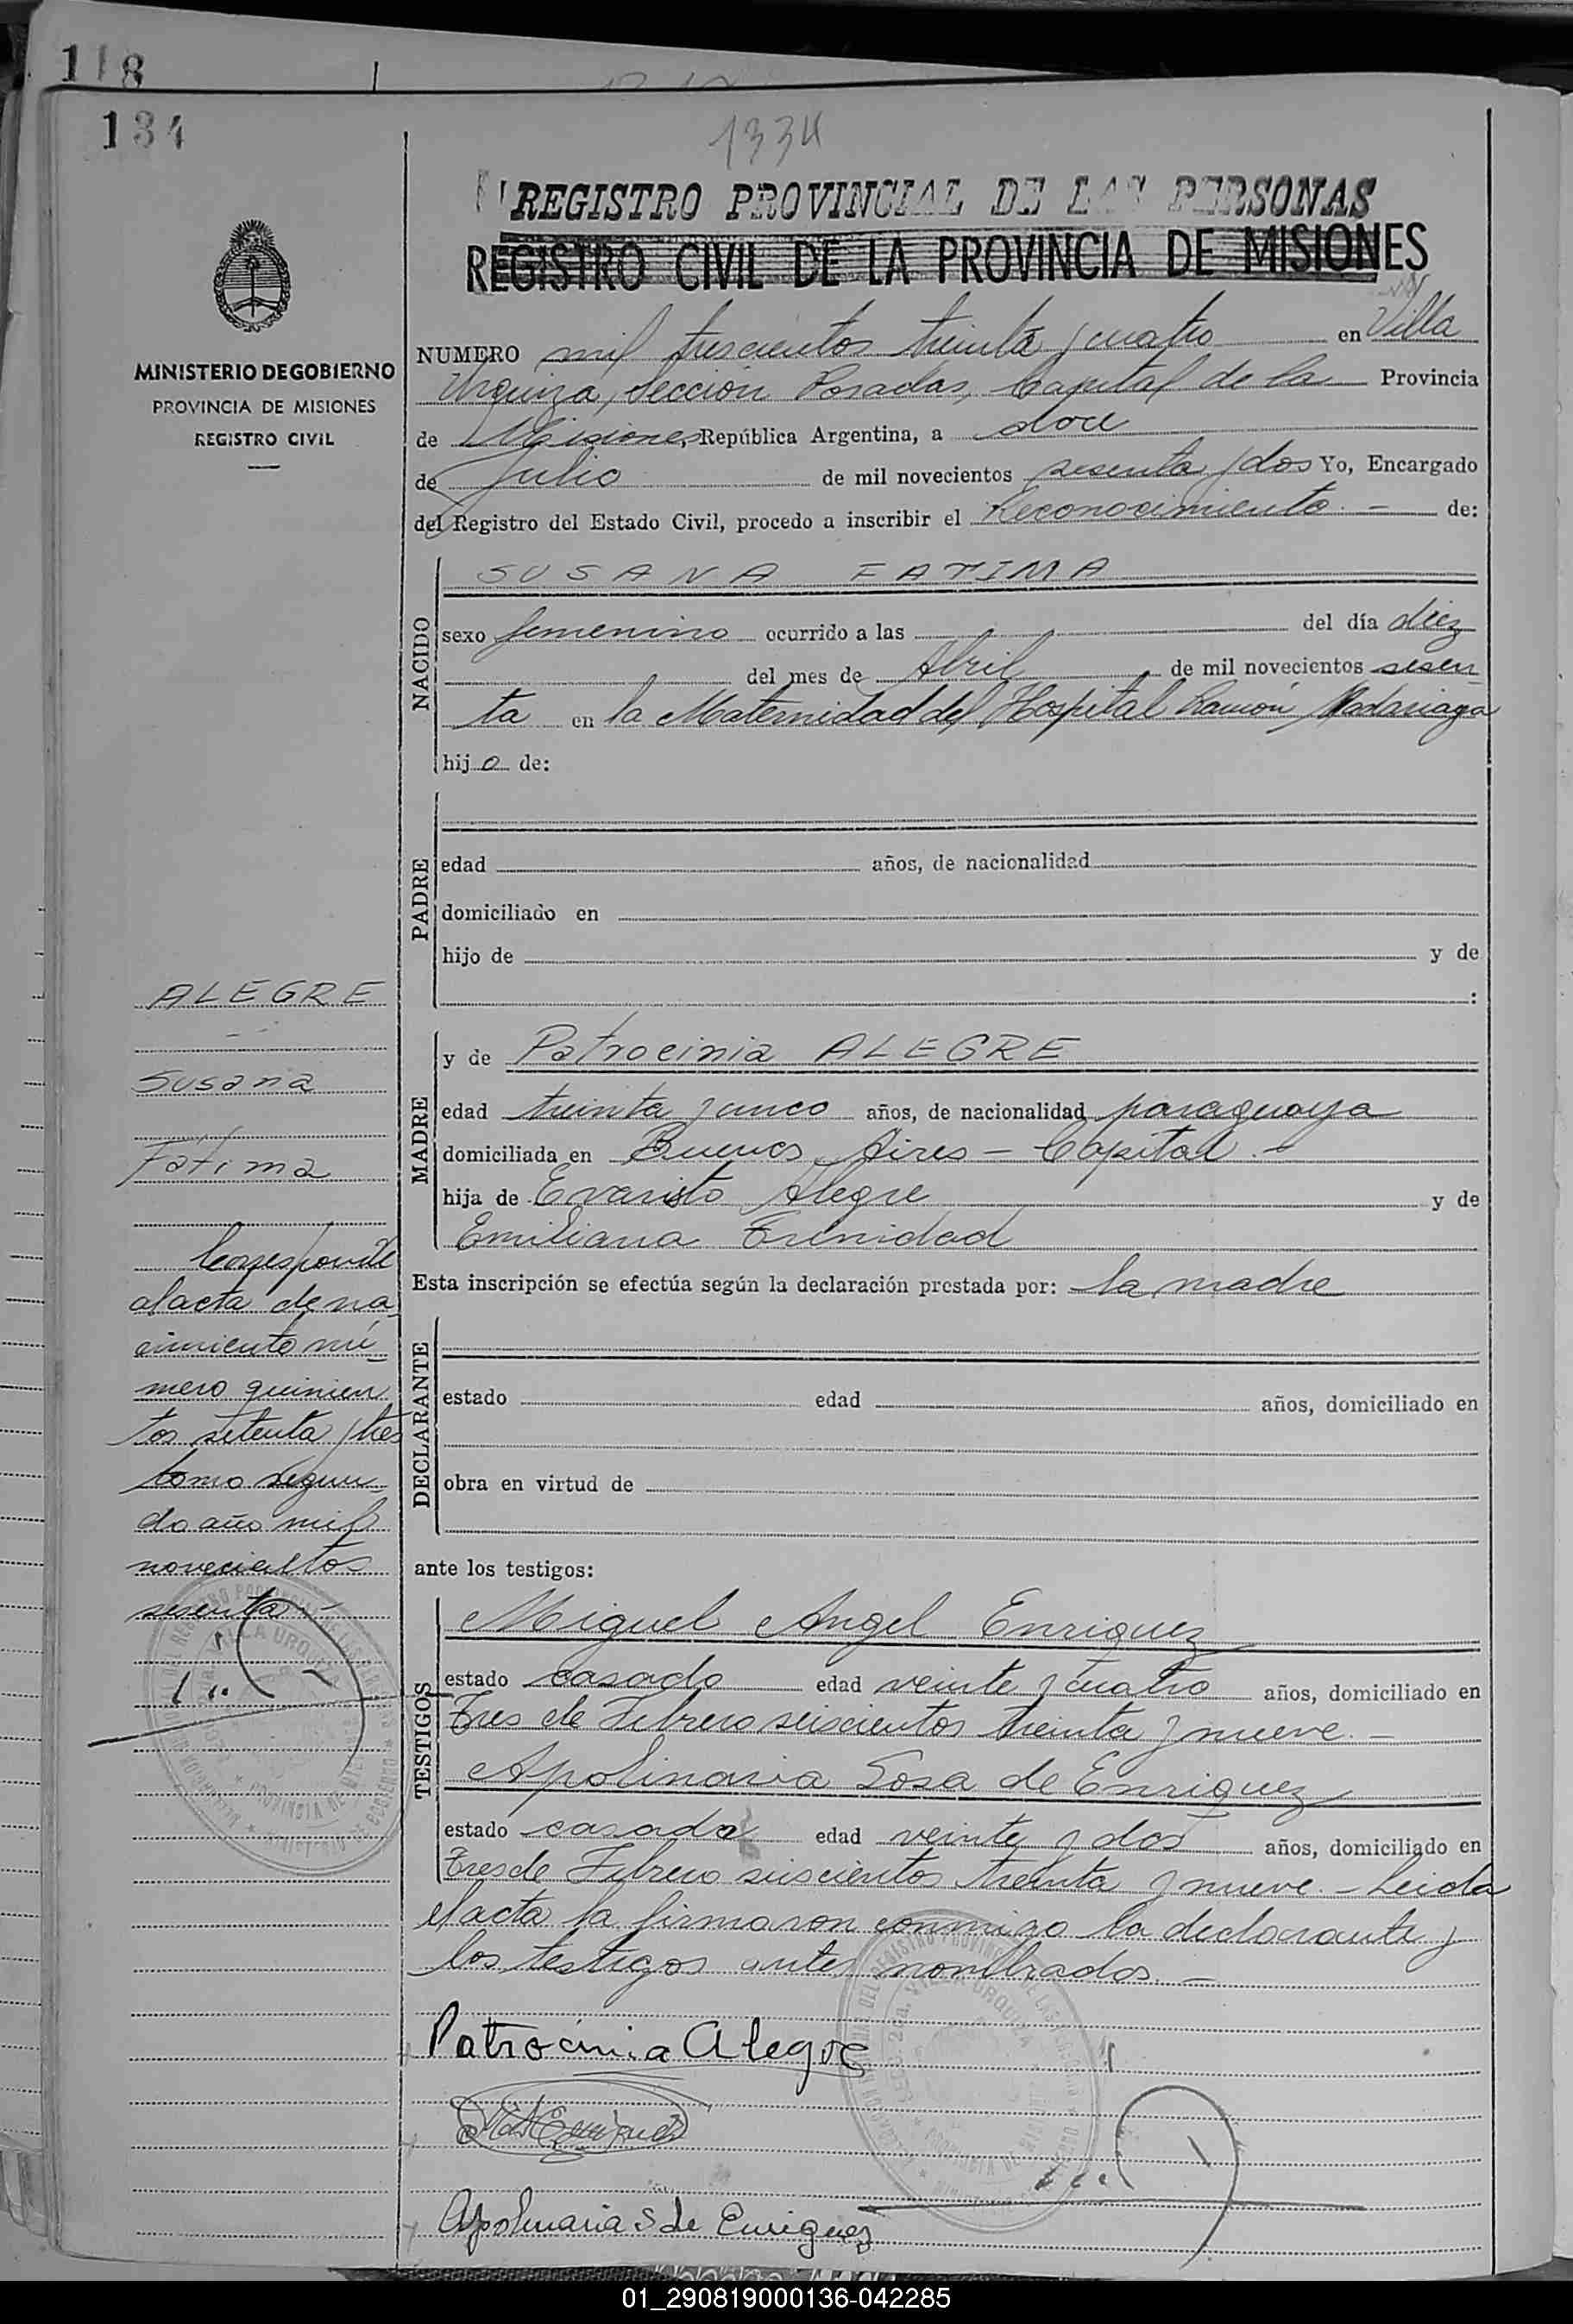 118
134
1334
REGISTRO PROVINCIAL DE LAS PERSONAS
REGISTRO CIVIL DE LA PROVINCIA DE MISIONES
MINISTERIO DE GOBIERNO
PROVINCIA DE MISIONES
REGISTRO CIVIL
NUMERO mil trescientos treinta y cuatro en Villa
Urquiza, Sección Posadas, Capital de la Provincia
de Misiones, República Argentina, a doce
de Julio de mil novecientos sesenta y dos Yo, Encargado
del Registro del Estado Civil, procedo a inscribir el Reconocimiento.- de:
NACIDO
SUSANA FATIMA
sexo femenino ocurrido a las del día diez
del mes de Abril de mil novecientos sesen
ta en la Maternidad del Hospital Ramón Madariaga
hij a de:
PADRE
edad años, de nacionalidad
domiciliado en
hijo de y de
:
MADRE
y de Patrocinia ALEGRE
edad treinta y cinco años, de nacionalidad paraguaya
domiciliada en Buenos Aires - Capital.-
hija de Evaristo Alegre y de
Emiliana Trinidad
Esta inscripción se efectúa según la declaración prestada por: la madre
DECLARANTE
estado edad años, domiciliado en
obra en virtud de
ante los testigos:
TESTIGOS
Miguel Angel Enriquez
estado casado edad veinte y cuatro años, domiciliado en
Tres de Febrero seiscientos treinta y nueve.-
Apolinaria Sosa de Enriquez
estado casada edad veinte y dos años, domiciliado en
Tres de Febrero seiscientos treinta y nueve.- Leida
el acta la firmaron conmigo la declarante y
los testigos antes nombrados.-
Patrocinia Alegre
Apolinaria S de Enriquez
ALEGRE
Susana
Fatima
Corresponde
al acta de na
cimiento nú-
mero quinien
tos setenta y tres
tomo segun-
do año mil
novecientos
sesenta
01_290819000136-042285